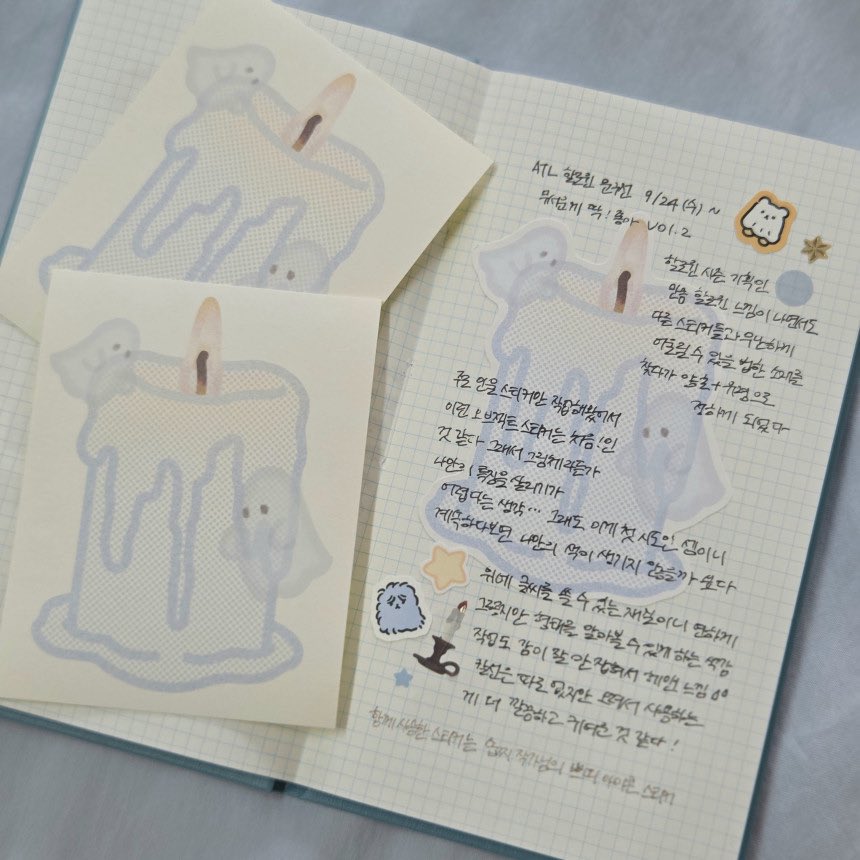 ATL 할로윈 문구전 9/24 (수) ~
무서운게 딱! 좋아 VOl.2
할로윈 시즌 기획인
만큼 할로윈 느낌이 나면서도
다른 스티커들과 무난하게
어울릴 수 있을 법한 소재를
찾다가 양초+유령으로
정하게 되었다
주로 인물 스티커만 작업해왔어서
이런 오브젝트 스티커는 처음!인
것 같다 그래서 그림체라든가
나만의 특징을 살리기가
어렵다는 생각... 그래도 이게 첫 시도인 셈이니
계속하다보면 나만의 색이 생기지 않을까 싶다
위에 글씨를 쓸 수 있는 재질이니 연하게
그렇지만 형태를 알아볼 수 있게 하는 색감
작업도 감이 잘 안 잡혀서 헤맨 느낌
칼선은 따로 없지만 오려서 사용하는
게 더 깔끔하고 귀여운 것 같다!
함께 사용한 스티커는 작가님의 아이콘 스티커